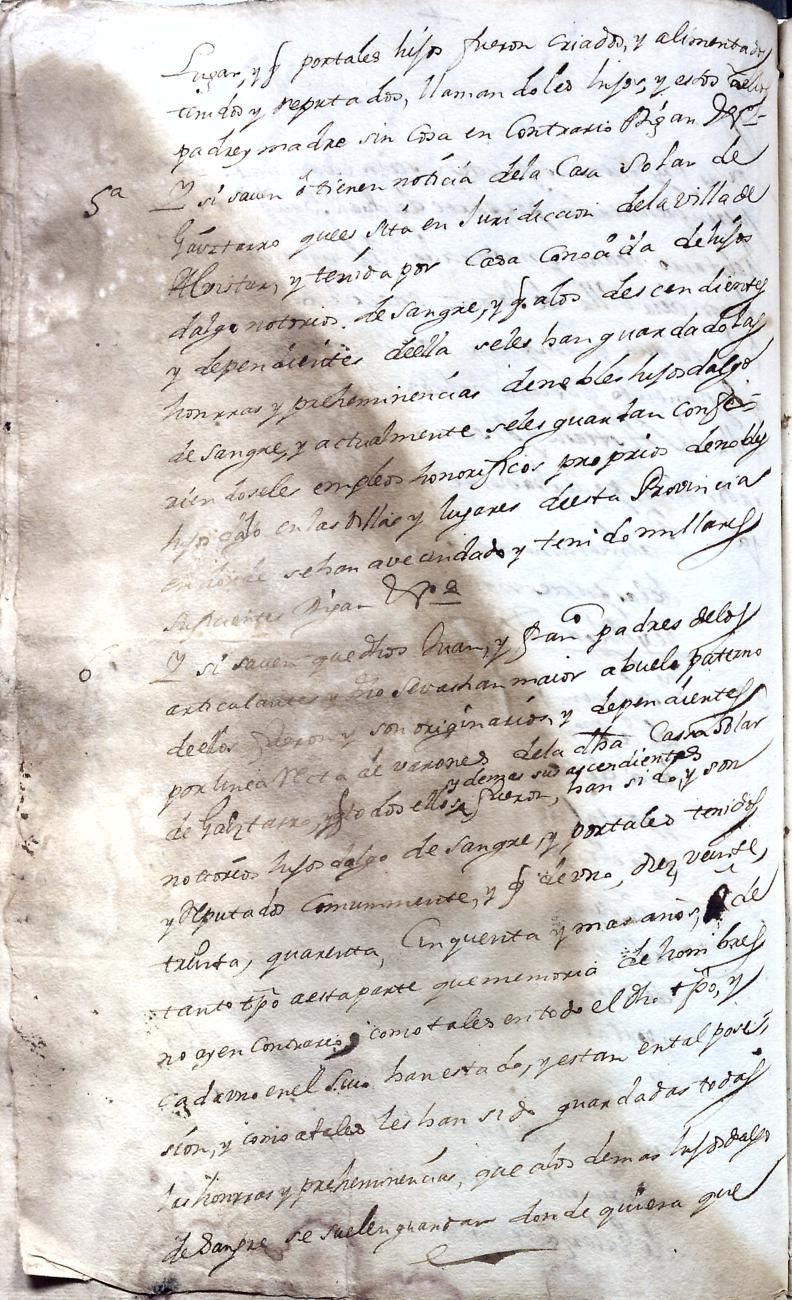 Lugar, y q portales hijos fueron criados, y alimentados
tenidos y reputados, llamandoles hijos, y estos a ellos
padre y madre sin cosa en Contrario Digan
5ª Y si saven o tienen noticia dela Casa Solar de
que es sita en Juridiccion dela villa de
y tenida por Casa Conocida de hijos
dalgo notorios de sangre, y q alos descendientes
y dependientes deella seles han guardado las
honrras y preheminencias de nobles hijosdalgo
de sangre, y actualmente seles guardan confi-
riendoseles empleos honorificos proprios de nobles
hijosdalgo en las Villas y lugares deesta Provincia
en donde se han avecindado y tenido millares
suficientes Digan
6 Y si saven que dhos Juan, y Franco padres delos
articulantes y dho Sevastian maior abuelo paterno
deellos fueron y son originarios, y dependientes
por linea recta de varones dela dha Cassa Solar
y demas sus ascendientes
de y q todos ellos fueron, han sido, y son
notorios hijosdalgo de sangre, y portales tenidos
y reputados Comunmente, y q de uno, diez, veinte,
treinta, quarenta, Cinquenta y mas años, de
tanto tpo aesta parte que memoria de hombres
no ay en Contrario, como tales en todo el dho tpo, y
cada uno en el Suio han estado, y estan en tal pose-
sion, y como atales les han sido guardadas todas
las honrras y preheminencias, que alos demas hijosdalgo
de Sangre se suelen guardar donde quiera que